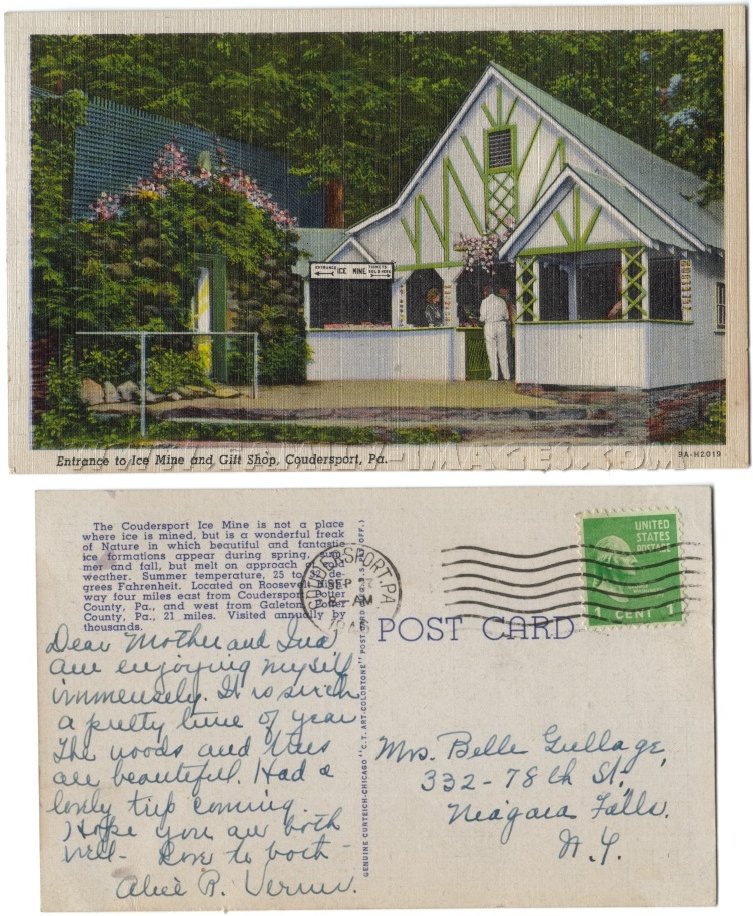 ENTRANCE ICE MINE TICKETS SOLD HERE
Entrance to Ice Mine and Gift Shop, Coudersport, Pa.
9A-H2019
The Coudersport Ice Mine is not a place
where ice is mined, but is a wonderful freak
of Nature in which beautiful and fantastic
ice formations appear during spring, sum-
mer and fall, but melt on approach of cold
weather. Summer temperature, 25 to de-
grees Fahrenheit. Located on Roosevelt High-
way four miles east from Coudersport, Potter
County, Pa., and west from Galeton, Potter
County, Pa., 21 miles. Visited annually by
thousands.
COUDERSPORT, PA.
SEP 27
AM
UNITED
STATES
POSTAGE
WASHINGTON
1 CENT 1
POST CARD
GENUINE CURTEICH-CHICAGO "C.T. ART-COLORTONE" POST CARD (REG. U.S. PAT. OFF.)
Dear Mother and Ina
am enjoying myself
immensely. It is such
a pretty time of year
The woods and trees
are beautiful. Had a
lovely trip coming.
Hope you are both
well- Love to both -
Alice R.
Mrs. Belle Gullage,
332-78th St.,
Niagara Falls.
N.Y.